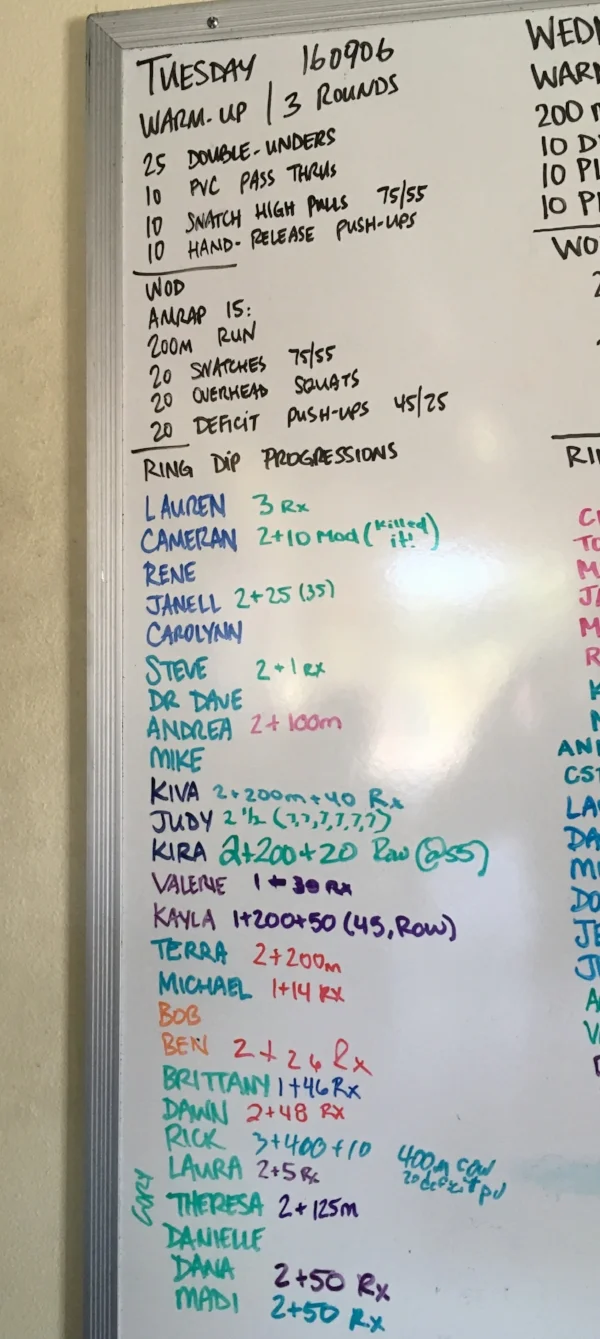 TUESDAY 160906
WARM-UP / 3 ROUNDS
25 DOUBLE-UNDERS
10 PVC PASS THRUS
10 SNATCH HIGH PULLS 75/55
10 HAND-RELEASE PUSH-UPS
WOD
AMRAP 15:
200M RUN
20 SNATCHES 75/55
20 OVERHEAD SQUATS
20 DEFICIT PUSH-UPS 45/25
RING DIP PROGRESSIONS
LAUREN 3 Rx
CAMERAN 2+10 Mod (Killed it!)
RENE
JANELL 2+25 (35)
CAROLYNN
STEVE 2+1 Rx
DR DAVE
ANDREA 2+100m
MIKE
KIVA 2+200m+40 Rx
JUDY 2 1/2 (?,?,?,?,?,?)
KIRA 2+200+20 Row (@55)
VALERIE 1+30 Rx
KAYLA 1+200+50 (45, Row)
TERRA 2+200m
MICHAEL 1+14 Rx
BOB
BEN 2+26 Rx
BRITTANY 1+46 Rx
DAWN 2+48 Rx
RICK 3+400+10 400m
20 deficit pu
LAURA 2+5 Rx
THERESA 2+125m
DANIELLE
DANA 2+50 Rx
MADI 2+50 Rx
WED
WARM
200
10
10
10
WO